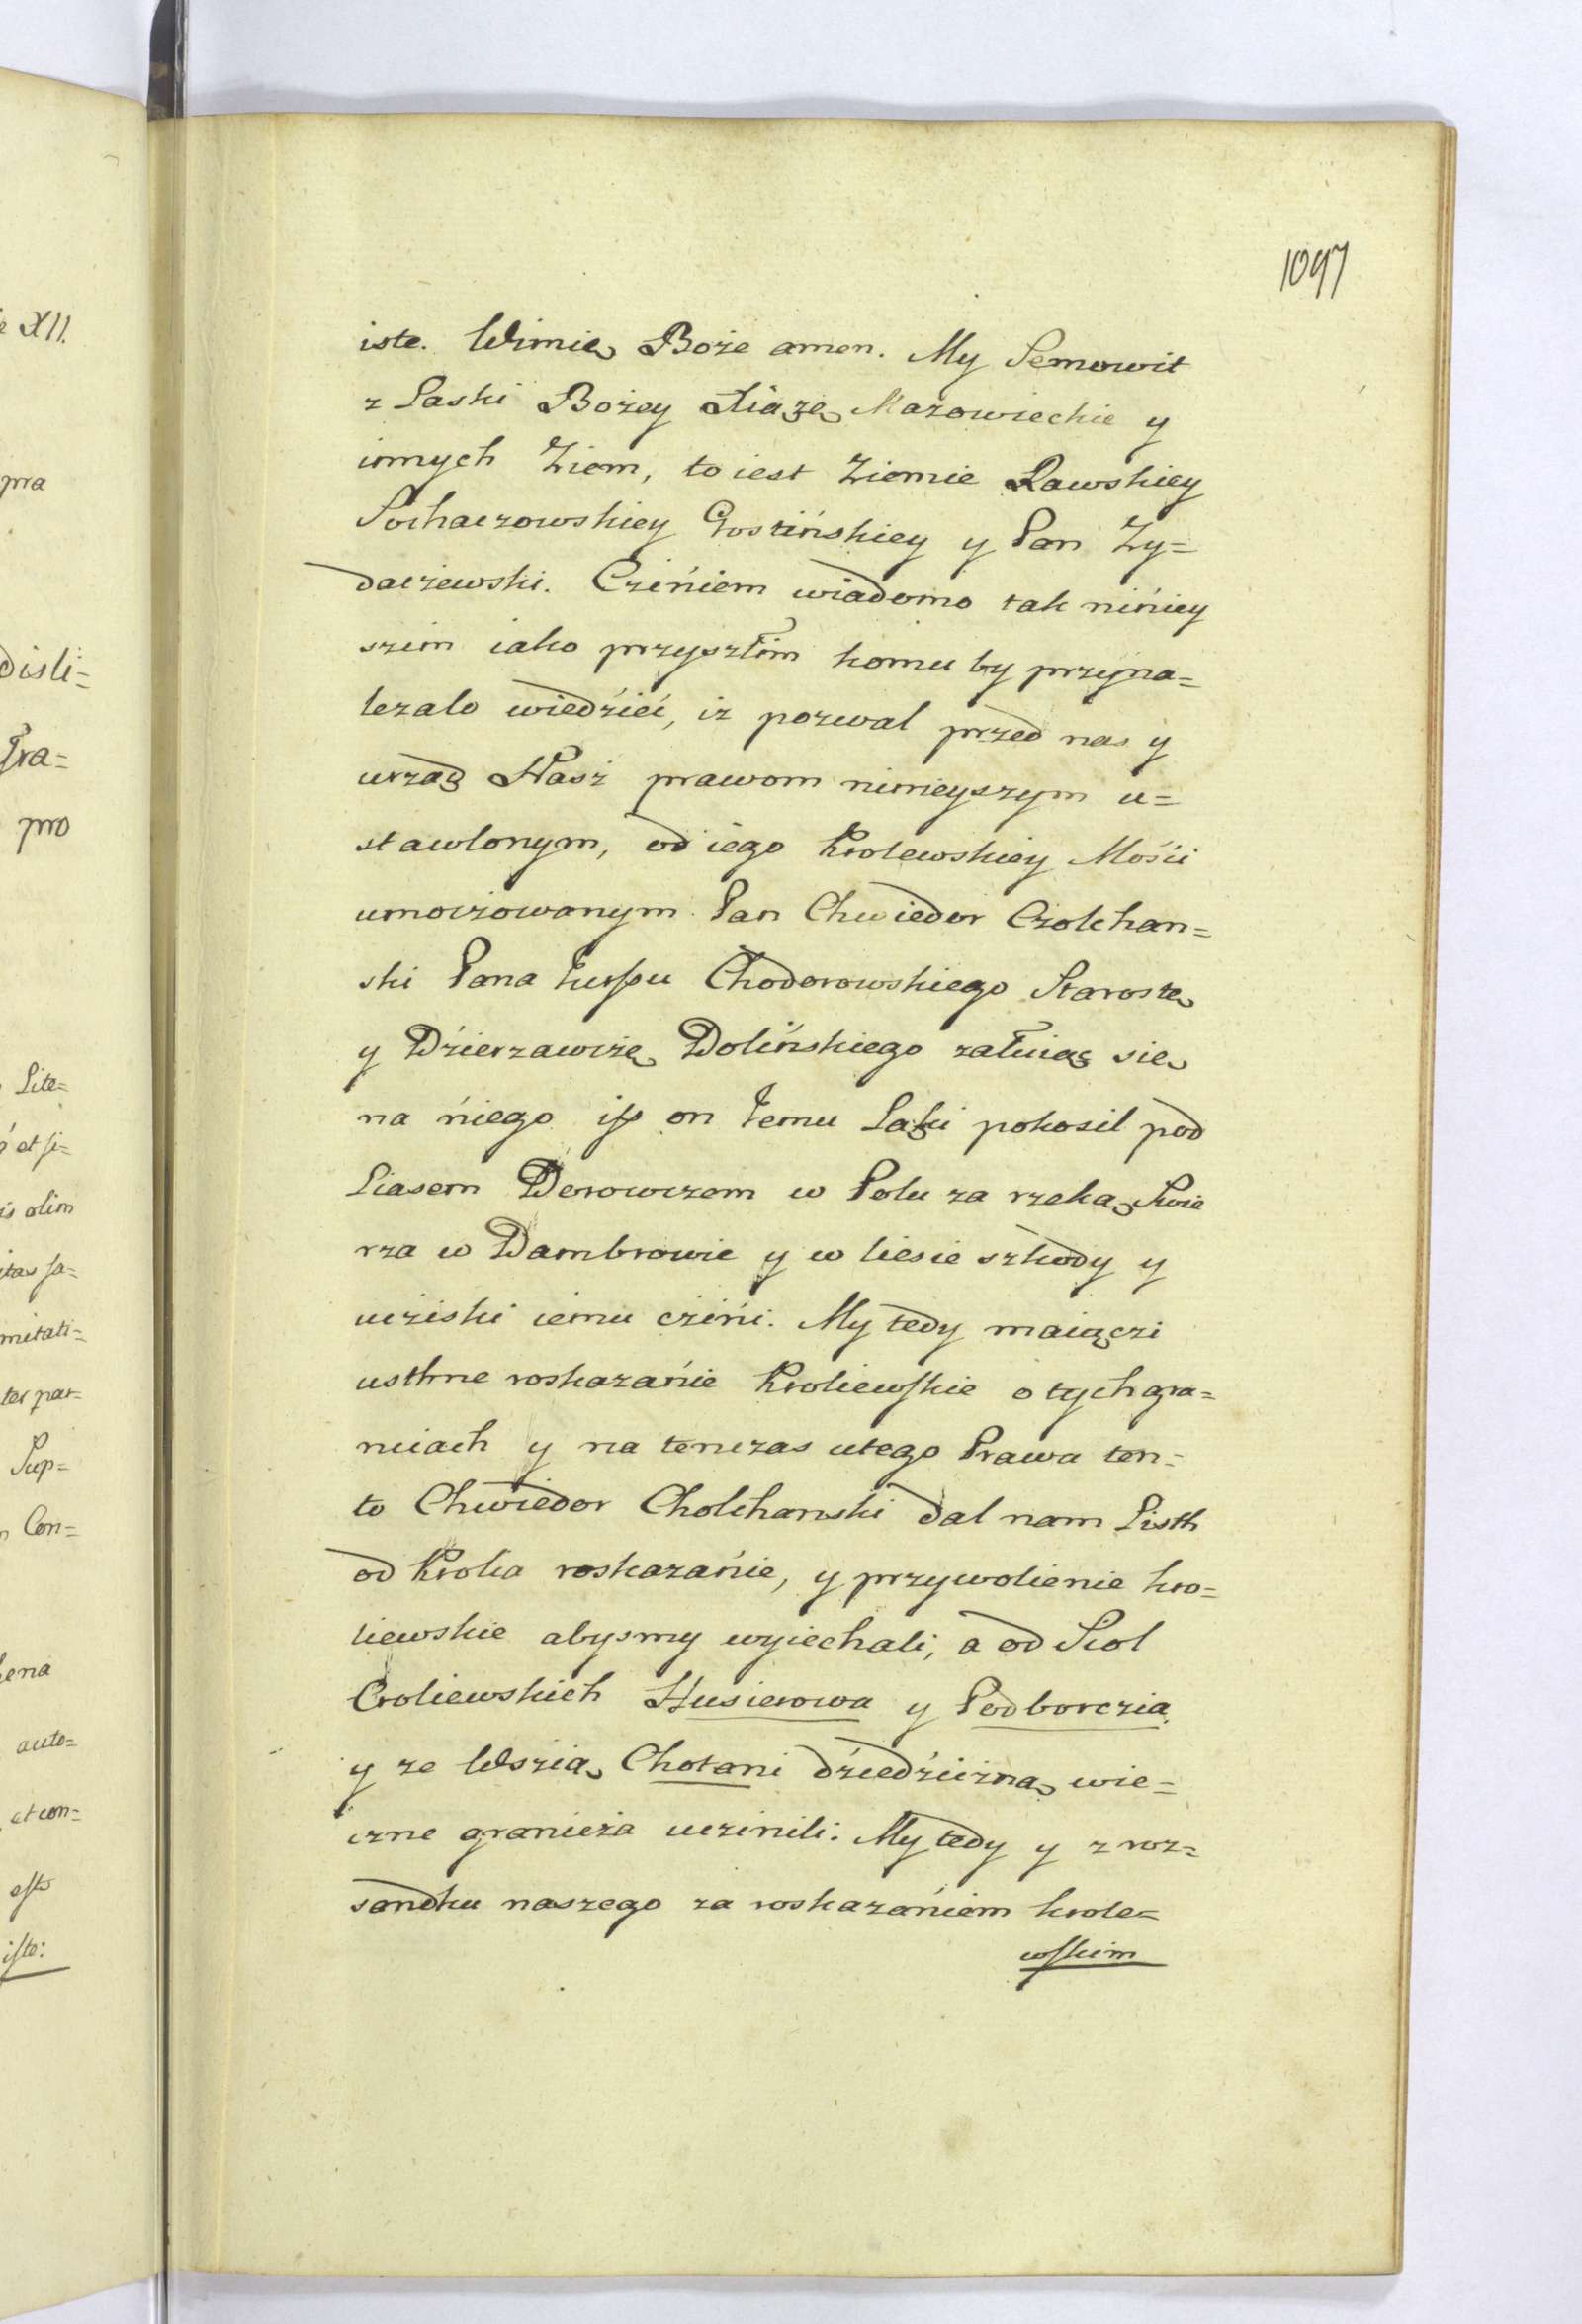 1097
iste. Wimię Boże amen. My Semowit
z Laski Bożey Xiąże Mazowieckie y
innych Ziem, to iest Ziemie Rawskiey
Sochaczowskiey Gostińskiey y Pan Zy=
daczewski. Czińiem wiadomo tak nińiey
szim iako przyszłim komu by przyna=
lezalo wiedźieć, iz pozwal przed nas y
urząd Nasz prawom ninieyszym u=
stawlonym, od iego Krolewskiey Mośći
umoczowanym Pan Chwiedor Czolchan=
ski Pana Jurſzu Chodorowskiego Starostę
y Dźierzawczę Dolińskiego załuiąc się
na ńiego iſz on Jemu Ląki pokosil pod
Liasem Derowczem w Polu za rzeką Swie
rza w Dambrowie y w liesie szkody y
ucziski iemu czińi. My tedy maiączi
usthne roskazańie Kroliewſkie o tych gra=
niciach y na tenczas utego Prawa ten=
to Chwiedor Cholchanski dal nam Listh
od Krolia roskazańie, y przywolienie kro=
liewskie abysmy wyiechali, a od Siol
Croliewskich Husierowa y Podborczia
y ze Wszią Chotani dźiedźiczną wie=
czne granicza uczinili. My tedy y z roz=
sandku naszego za roskazańiem krole=
wſkim
e XII.
pra
disli=
Gra=
pro
Lite=
et ſi=
is olim
itas ſa=
mitati=
ter par=
Sup=
Con=
auto=
et con=
eſto
iſte: